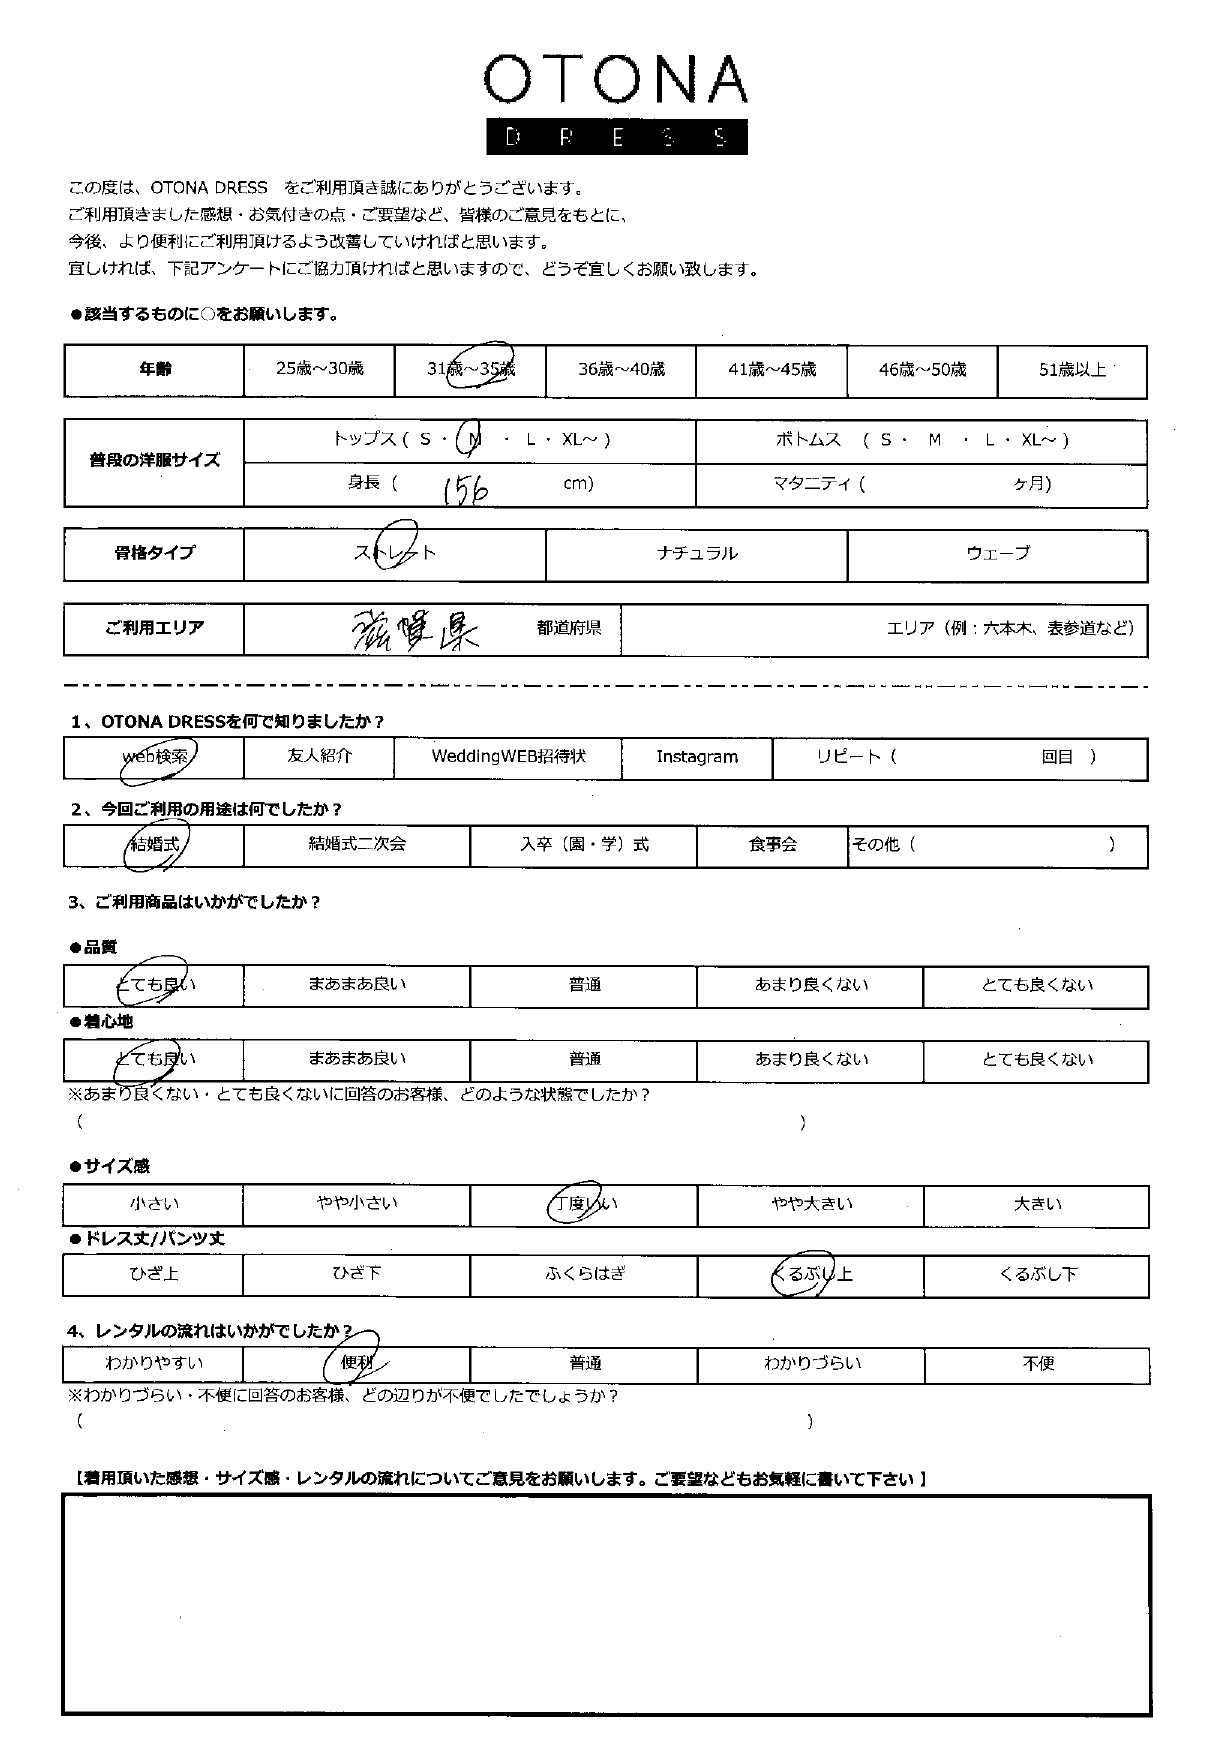 OTONA
DRESS
この度は、OTONA DRESS　をご利用頂き誠にありがとうございます。
ご利用頂きました感想・お気付きの点・ご要望など、皆様のご意見をもとに、
今後、より便利にご利用頂けるよう改善していければと思います。
宜しければ、下記アンケートにご協力頂ければと思いますので、どうぞ宜しくお願い致します。
●該当するものに○をお願いします。
年齢 25歳～30歳 31歳～35歳 36歳～40歳 41歳～45歳 46歳～50歳 51歳以上
普段の洋服サイズ トップス ( S ・ M ・ L ・ XL～ ) ボトムス ( S ・ M ・ L ・ XL～ )
身長 ( 156 cm) マタニティ ( ヶ月)
骨格タイプ ストレート ナチュラル ウェーブ
ご利用エリア 滋賀県 都道府県 エリア（例：六本木、表参道など）
1、OTONA DRESSを何で知りましたか？
web検索 友人紹介 WeddingWEB招待状 Instagram リピート ( 回目 )
2、今回ご利用の用途は何でしたか？
結婚式 結婚式二次会 入卒（園・学）式 食事会 その他 ( )
3、ご利用商品はいかがでしたか？
●品質
とても良い まあまあ良い 普通 あまり良くない とても良くない
●着心地
とても良い まあまあ良い 普通 あまり良くない とても良くない
※あまり良くない・とても良くないに回答のお客様、どのような状態でしたか？
( )
●サイズ感
小さい やや小さい 丁度いい やや大きい 大きい
●ドレス丈/パンツ丈
ひざ上 ひざ下 ふくらはぎ くるぶし上 くるぶし下
4、レンタルの流れはいかがでしたか？
わかりやすい 便利 普通 わかりづらい 不便
※わかりづらい・不便に回答のお客様、どの辺りが不便でしたでしょうか？
( )
【着用頂いた感想・サイズ感・レンタルの流れについてご意見をお願いします。ご要望などもお気軽に書いて下さい】